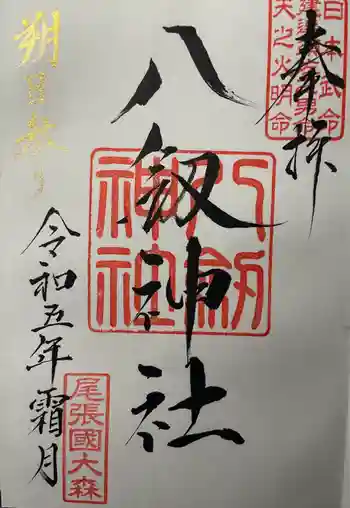 奉拝
日本武命
建速須佐男命
天之火明命
八剱神社
八剱神社
朔日参り
令和五年霜月
尾張國大森